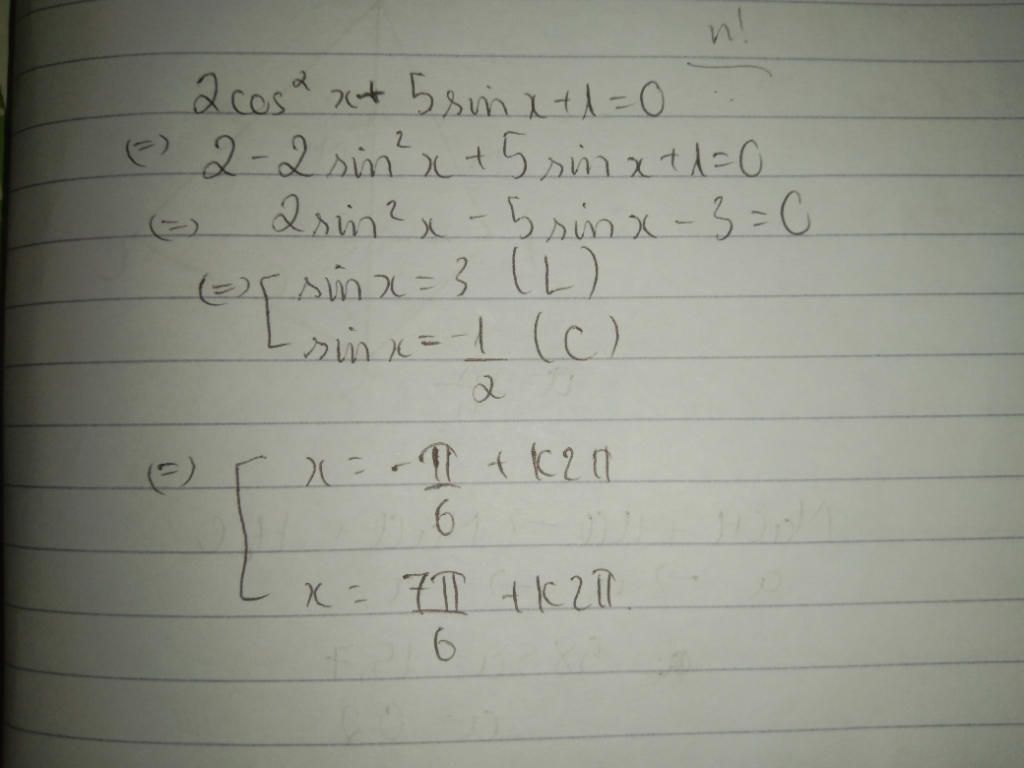 n!
2cos² x + 5 sin x + 1 = 0
(=) 2 - 2 sin² x + 5 sin x + 1 = 0
(=) 2 sin² x - 5 sin x - 3 = 0
(=) [ sin x = 3 (L)
sin x = -1/2 (C)
(=) [ x = -π/6 + k2π
x = 7π/6 + k2π.